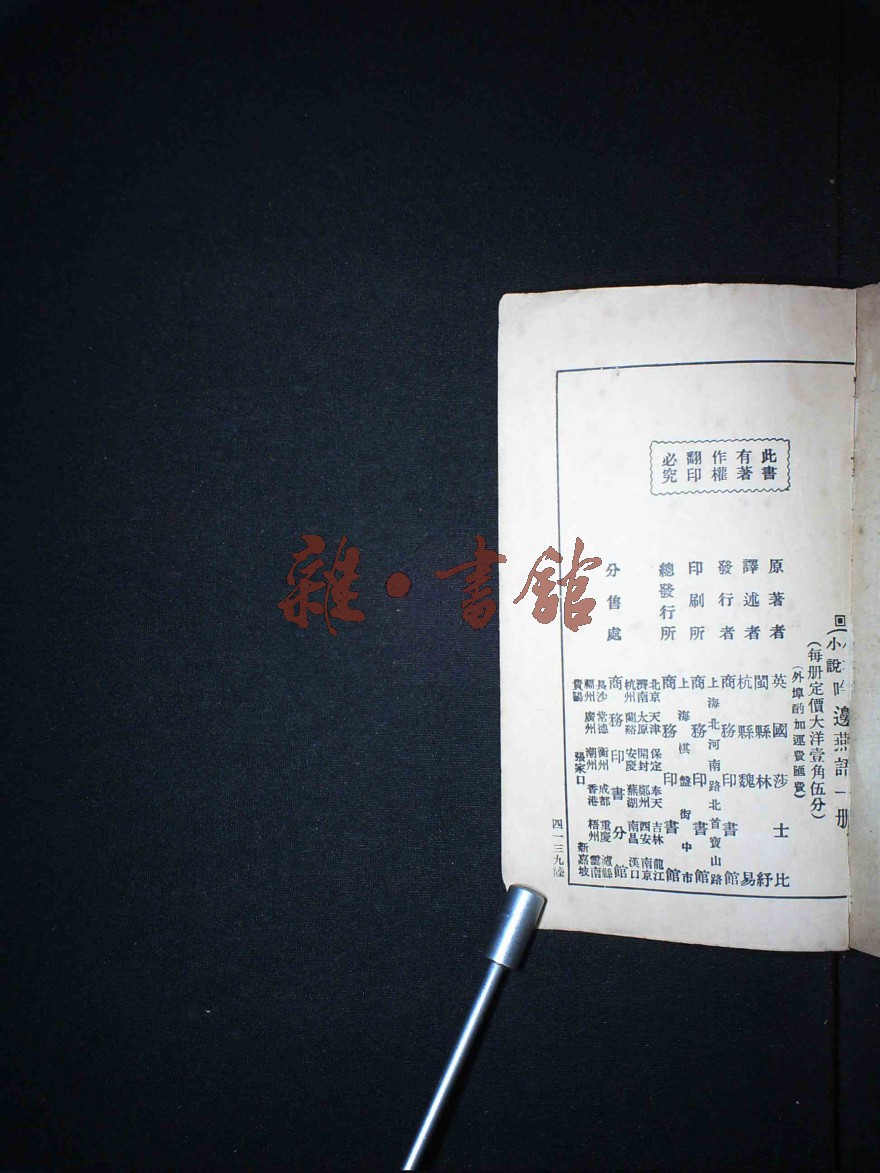 此書
有著
作權
翻印
必究
小說吟邊燕語一册
(每册定價大洋壹角伍分)
(外埠酌加運費匯費)
原著者 英國莎士比
譯述者 閩縣林紓
杭縣魏易
發行者 商務印書館
印刷所 上海北河南路北首寶山路
商務印書館
總發行所 上海棋盤街中市
商務印書館
分售處 北京 天津 保定 奉天 吉林 龍江
濟南 太原 開封 鄭州 西安 南京
杭州 蘭谿 安慶 蕪湖 南昌 漢口
商務印書分館
長沙 常德 衡州 成都 重慶 瀘縣
福州 廣州 潮州 香港 梧州 雲南
貴陽 張家口 新嘉坡
四一三九陸
雜·書館